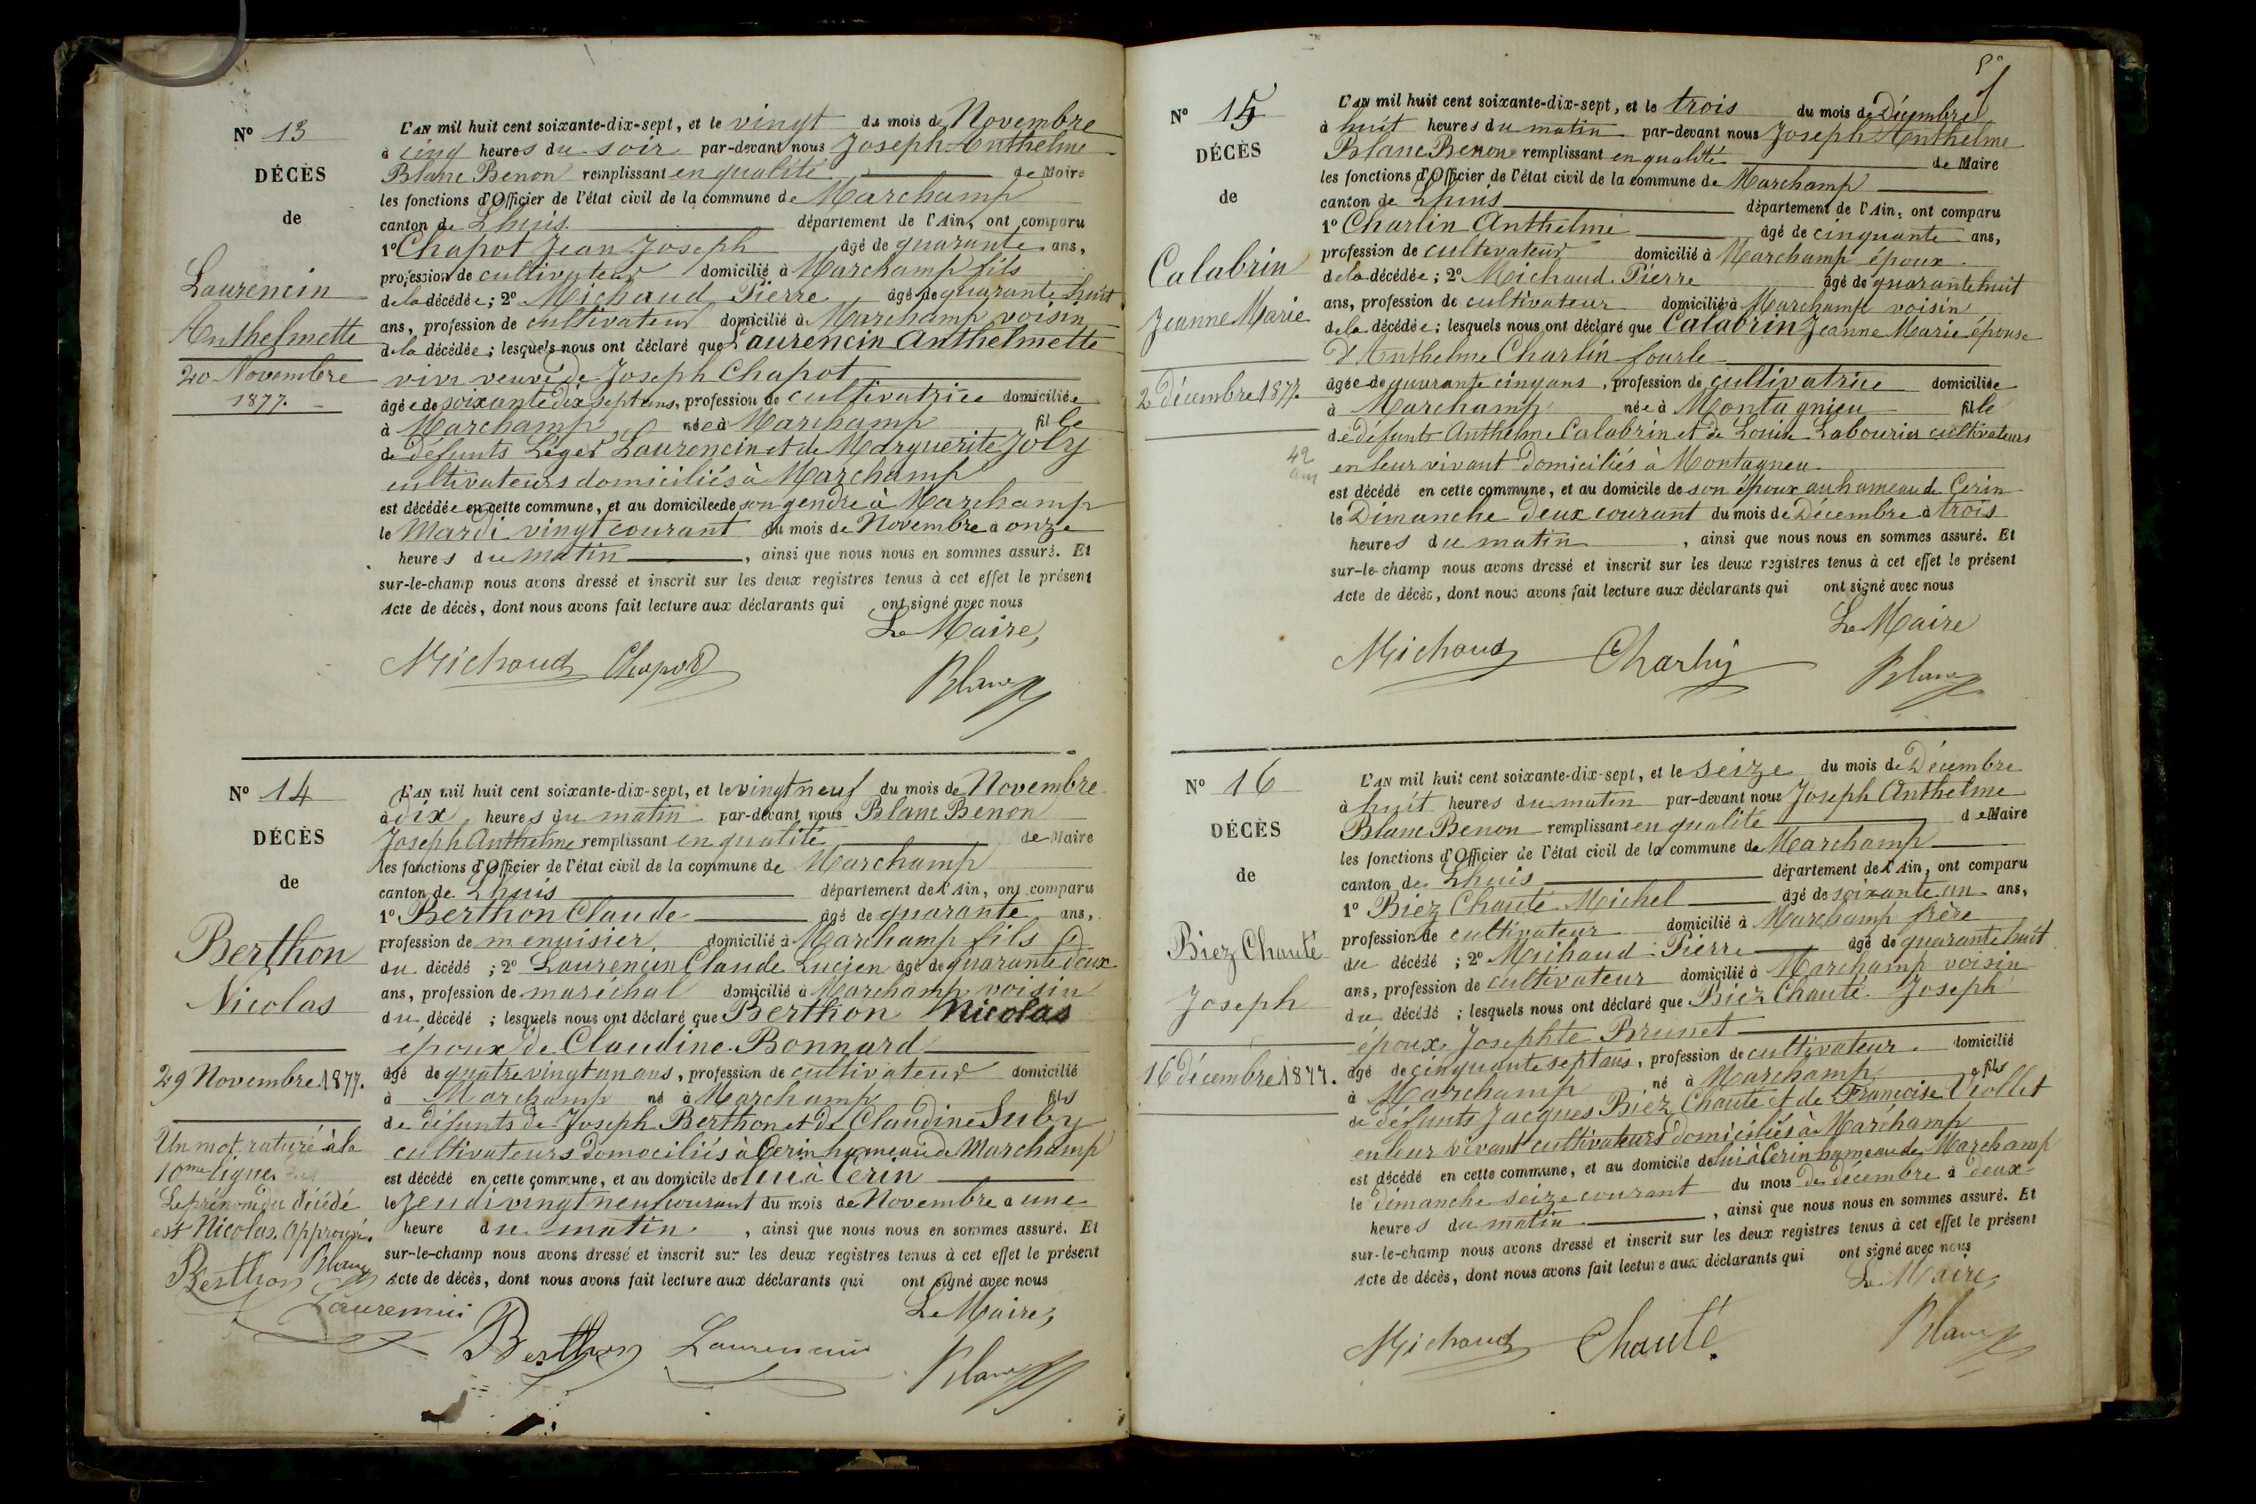 N° 13
DÉCÈS
de
Laurencin
Anthelmette
20 Novembre
1877.
L'AN mil huit cent soixante-dix-sept, et le vingt du mois de Novembre
à cinq heures du soir par-devant nous Joseph Anthelme
Blanc Benon remplissant en qualité de Maire
les fonctions d'Officier de l'état civil de la commune de Marchamp
canton de Lhuis département de l'Ain, ont comparu
1° Chapot Jean Joseph âgé de quarante ans,
profession de cultivateur domicilié à Marchamp fils
de la décédée; 2° Michaud Pierre âgé de quarante huit
ans, profession de cultivateur domicilié à Marchamp voisin
de la décédée; lesquels nous ont déclaré que Laurencin Anthelmette
veuve de Joseph Chapot
âgée de soixante dix sept ans, profession de cultivatrice domiciliée
à Marchamp née à Marchamp fille
de défunts Léger Laurencin et de Marguerite Joly
cultivateurs domiciliés à Marchamp
est décédée en cette commune, et au domicile de son gendre à Marchamp
le Mardi vingt courant du mois de Novembre à onze
heures du matin, ainsi que nous nous en sommes assuré. Et
sur-le-champ nous avons dressé et inscrit sur les deux registres tenus à cet effet le présent
Acte de décès, dont nous avons fait lecture aux déclarants qui ont signé avec nous
Le Maire,
Michaud Chapot
Blanc
N° 14
DÉCÈS
de
Berthon
Nicolas
29 Novembre 1877.
Un mot raturé à la
10me ligne.
Le prénom du décédé
est Nicolas. Approuvé.
Blanc
Berthon
Laurencin
L'AN mil huit cent soixante-dix-sept, et le vingt neuf du mois de Novembre
à dix heures du matin par-devant nous Blanc Benon
Joseph Anthelme remplissant en qualité de Maire
les fonctions d'Officier de l'état civil de la commune de Marchamp
canton de Lhuis département de l'Ain, ont comparu
1° Berthon Claude âgé de quarante ans,
profession de menuisier, domicilié à Marchamp fils
du décédé; 2° Laurencin Claude Lucien âgé de quarante deux
ans, profession de maréchal domicilié à Marchamp voisin
du décédé; lesquels nous ont déclaré que Berthon Nicolas
époux de Claudine Bonnard
âgé de quatre vingt un ans, profession de cultivateur domicilié
à Marchamp né à Marchamp fils
de défunts de Joseph Berthon et de Claudine Suby
cultivateurs domociliés à Cerin hameau de Marchamp
est décédé en cette commune, et au domicile de lui à Cerin
le Jeudi vingt neuf courant du mois de Novembre à une
heure du matin, ainsi que nous nous en sommes assuré. Et
sur-le-champ nous avons dressé et inscrit sur les deux registres tenus à cet effet le présent
Acte de décès, dont nous avons fait lecture aux déclarants qui ont signé avec nous
Le Maire,
Berthon Laurencin
Blanc
N° 15
DÉCÈS
de
Calabrin
Jeanne Marie
2 Décembre 1877.
42
ans
L'AN mil huit cent soixante-dix-sept, et le trois du mois de Décembre
à huit heures du matin par-devant nous Joseph Anthelme
Blanc Benon remplissant en qualité de Maire
les fonctions d'Officier de l'état civil de la commune de Marchamp
canton de Lhuis département de l'Ain, ont comparu
1° Charlin Anthelme âgé de cinquante ans,
profession de cultivateur domicilié à Marchamp époux
de la décédée; 2° Michaud Pierre âgé de quarante huit
ans, profession de cultivateur domicilié à Marchamp voisin
de la décédée; lesquels nous ont déclaré que Calabrin Jeanne Marie épouse
d'Anthelme Charlin fourle
âgée de quarante cinq ans, profession de cultivatrice domiciliée
à Marchamp née à Montagnieu fille
de défunts Anthelme Calabrin et de Louise Labourier cultivateurs
en leur vivant domiciliés à Montagneu
est décédé en cette commune, et au domicile de son époux au hameau de Cerin
le Dimanche deux courant du mois de Décembre à trois
heures du matin, ainsi que nous nous en sommes assuré. Et
sur-le-champ nous avons dressé et inscrit sur les deux registres tenus à cet effet le présent
Acte de décès, dont nous avons fait lecture aux déclarants qui ont signé avec nous
Le Maire
Michaud Charlin
Blanc
N° 16
DÉCÈS
de
Biez Chauté
Joseph
16 décembre 1877.
L'AN mil huit cent soixante-dix-sept, et le seize du mois de Décembre
à huit heures du matin par-devant nous Joseph Anthelme
Blanc Benon remplissant en qualité de Maire
les fonctions d'Officier de l'état civil de la commune de Marchamp
canton de Lhuis département de l'Ain, ont comparu
1° Biez Chauté Michel âgé de soixante un ans,
profession de cultivateur domicilié à Marchamp frère
du décédé; 2° Michaud Pierre âgé de quarante huit
ans, profession de cultivateur domicilié à Marchamp voisin
du décédé; lesquels nous ont déclaré que Biez Chauté Joseph
époux Josephte Brunet
âgé de cinquante sept ans, profession de cultivateur domicilié
à Marchamp né à Marchamp fils
de défunts Jacques Biez Chauté et de Françoise Viollet
en leur vivant cultivateurs domiciliés à Marchamp
est décédé en cette commune, et au domicile de lui à Cerin hameau de Marchamp
le dimanche seize courant du mois de décembre à deux
heures du matin, ainsi que nous nous en sommes assuré. Et
sur-le-champ nous avons dressé et inscrit sur les deux registres tenus à cet effet le présent
Acte de décès, dont nous avons fait lecture aux déclarants qui ont signé avec nous
Le Maire,
Michaud Chauté
Blanc